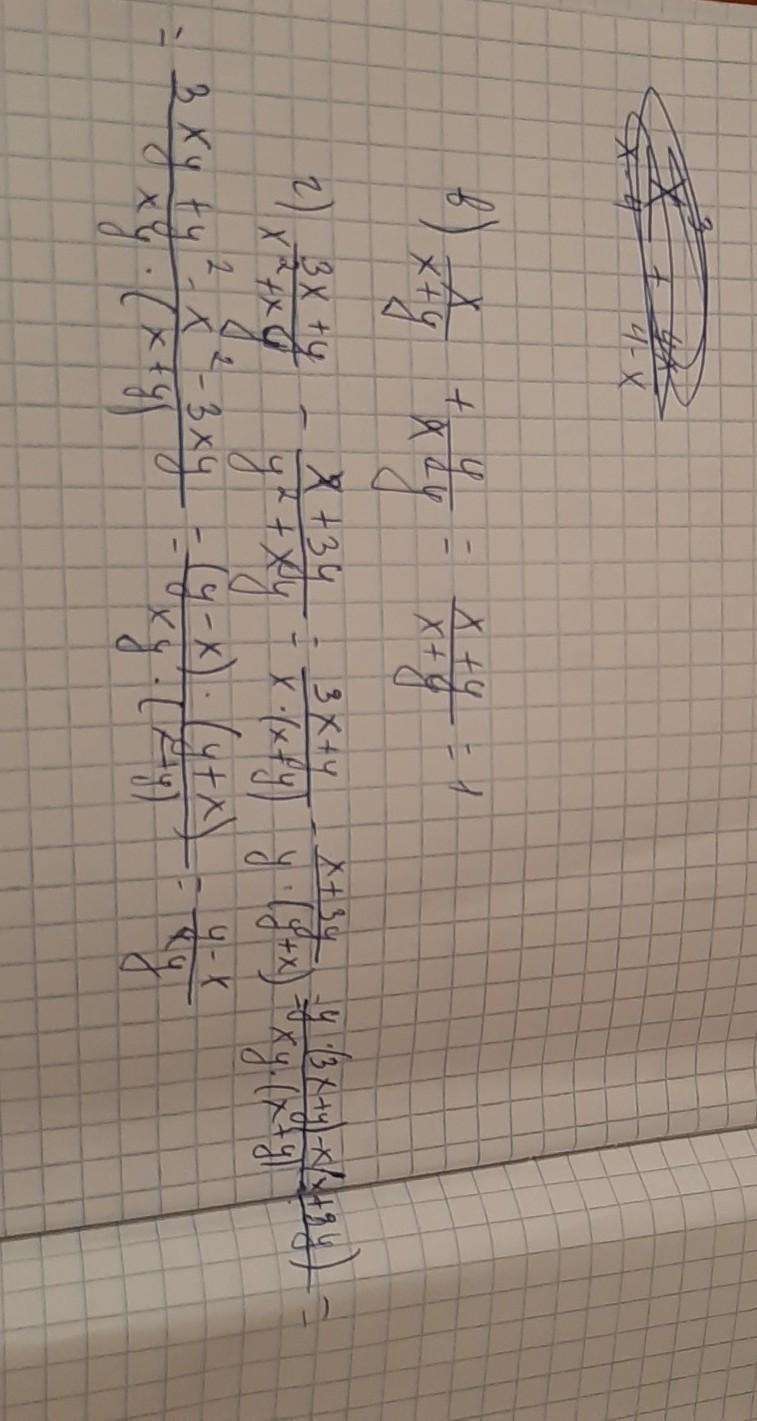 в) x/(x+y) + y/(x+y) = (x+y)/(x+y) = 1
г) (3x+y)/(x²+xy) - (x+3y)/(y²+xy) = (3x+y)/(x·(x+y)) - (x+3y)/(y·(y+x)) = (y·(3x+y)-x(x+3y))/(xy·(x+y)) =
= (3xy+y²-x²-3xy)/(xy·(x+y)) = ((y-x)·(y+x))/(xy·(x+y)) = (y-x)/(xy)